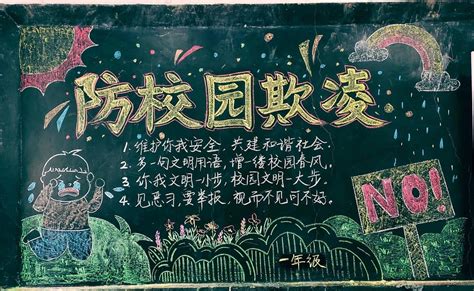 防校园欺凌
1. 维护你我安全, 共建和谐社会.
2. 多一句文明用语, 增一缕校园春风.
3. 你我文明一小步, 校园文明一大步.
4. 见恶习, 要举报, 视而不见可不好.
NO!
一年级